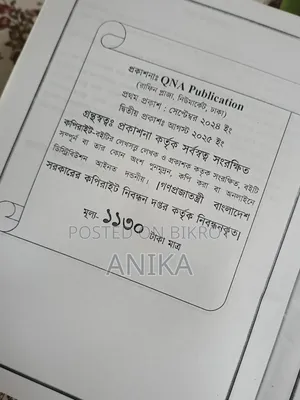 প্রকাশনাঃ QNA Publication
(রাফিন প্লাজা, নিউমার্কেট, ঢাকা)
প্রথম প্রকাশ : সেপ্টেম্বর ২০২৪ ইং
দ্বিতীয় প্রকাশঃ আগস্ট ২০২৫ ইং
গ্রন্থস্বত্বঃ প্রকাশনা কর্তৃক সর্বস্বত্ব সংরক্ষিত
কপিরাইট-বইটির লেখসত্ব লেখক ও প্রকাশক কর্তৃক সংরক্ষিত, বইটি
সম্পূর্ণ বা তার কোন অংশ পুনমুদ্রন, কপি করা বা অনলাইনে
ডিস্ট্রিবিউশন আইনত দন্ডনীয়। গণপ্রজাতন্ত্রী বাংলাদেশ
সরকারের কপিরাইট নিবন্ধন দপ্তর কর্তৃক নিবন্ধনকৃত।
মূল্য- ১১৩০ টাকা মাত্র
POSTED ON BIKROY
ANIKA